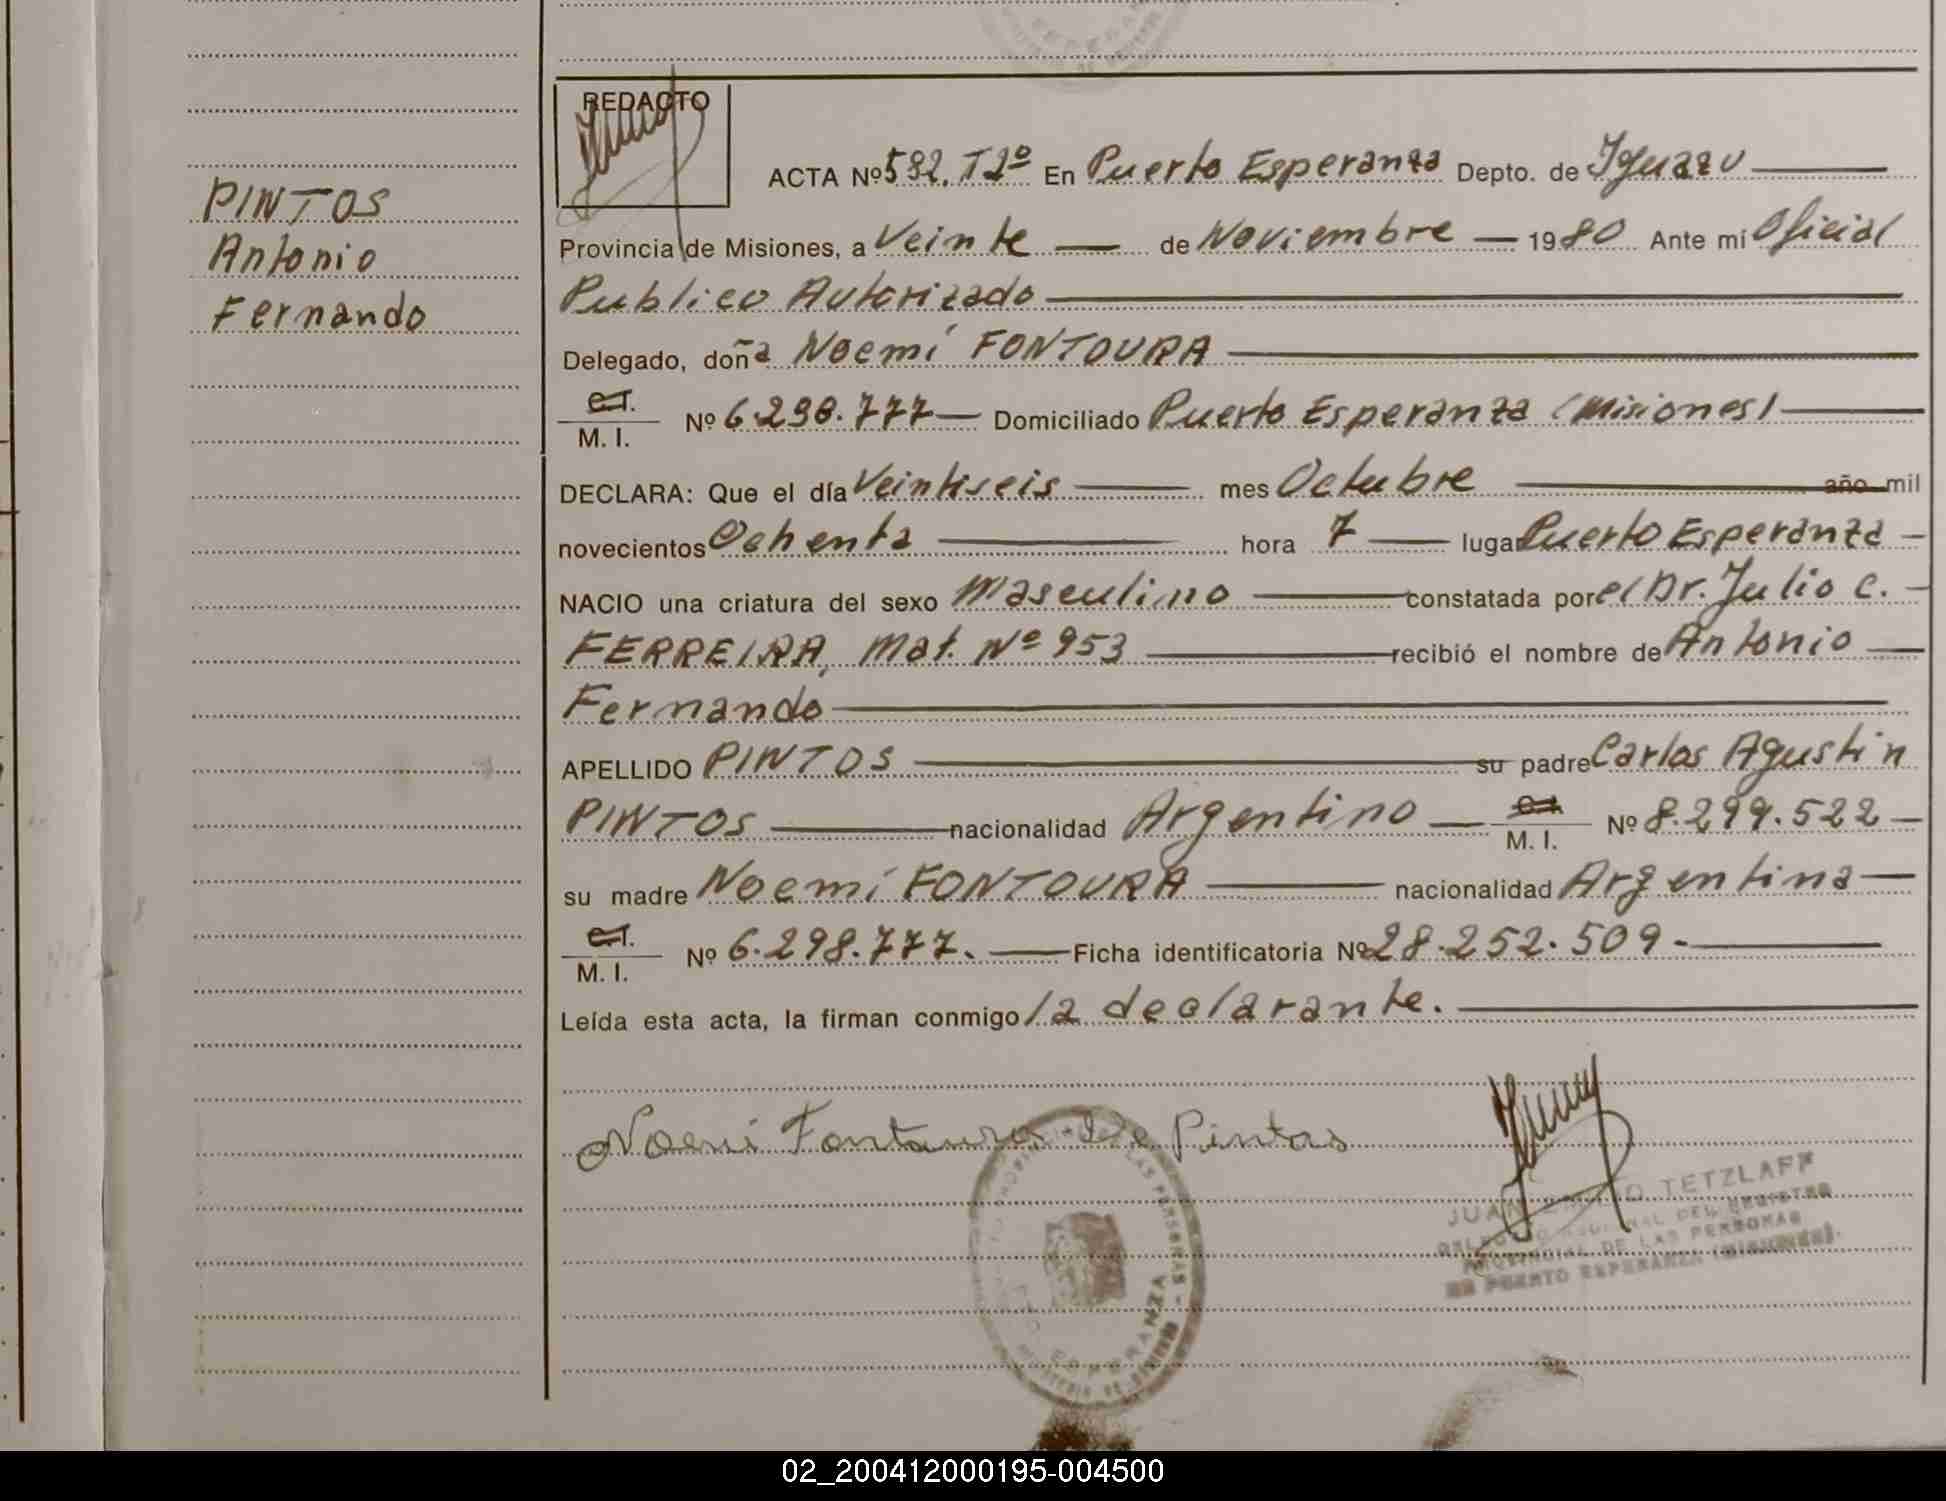 REDACTO
ACTA Nº 592. T2º En Puerto Esperanza Depto. de Iguazu
PINTOS
Antonio
Fernando
Provincia de Misiones, a Veinte de Noviembre 1980 Ante mí Oficial
Publico Autorizado
Delegado, doña Noemí FONTOURA
C.I.
M. I. Nº 6.298.777 Domiciliado Puerto Esperanza (Misiones)
DECLARA: Que el día Veintiseis mes Octubre año mil
novecientos Ochenta hora 7 lugar Puerto Esperanza
NACIO una criatura del sexo Masculino constatada por el Dr. Julio C.
FERREIRA, Mat. Nº 953 recibió el nombre de Antonio
Fernando
APELLIDO PINTOS su padre Carlos Agustin
PINTOS nacionalidad Argentino C.I.
M. I. Nº 8.299.522
su madre Noemí FONTOURA nacionalidad Argentina
C.I.
M. I. Nº 6.298.777. Ficha identificatoria Nº 28.252.509-
Leída esta acta, la firman conmigo la declarante.
Noemi Fontoura De Pintos
JUAN TETZLAFF
DEL REGISTRO
PROVINCIAL DE LAS PERSONAS
PUERTO ESPERANZA (MISIONES)
DE LAS PERSONAS
ESPERANZA
02_200412000195-004500